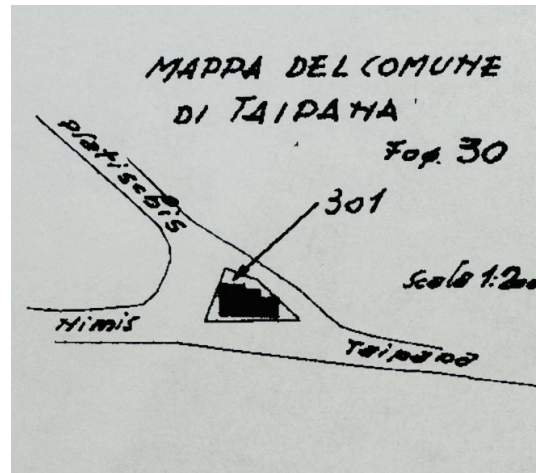 MAPPA DEL COMUNE
DI TAIPANA
Fog. 30
Platischis
301
Scala 1:2000
Nimis
Taipana